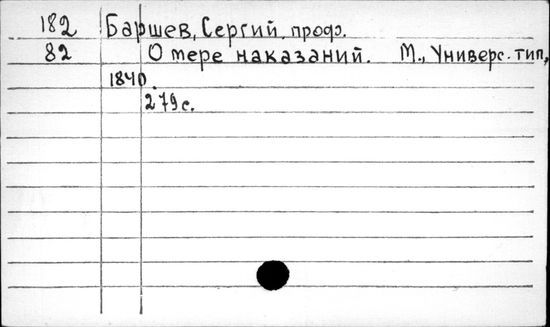 182 Баршев, Сергий, проф.
82 О мере наказаний. М., Универс. тип.,
1840.
279 с.